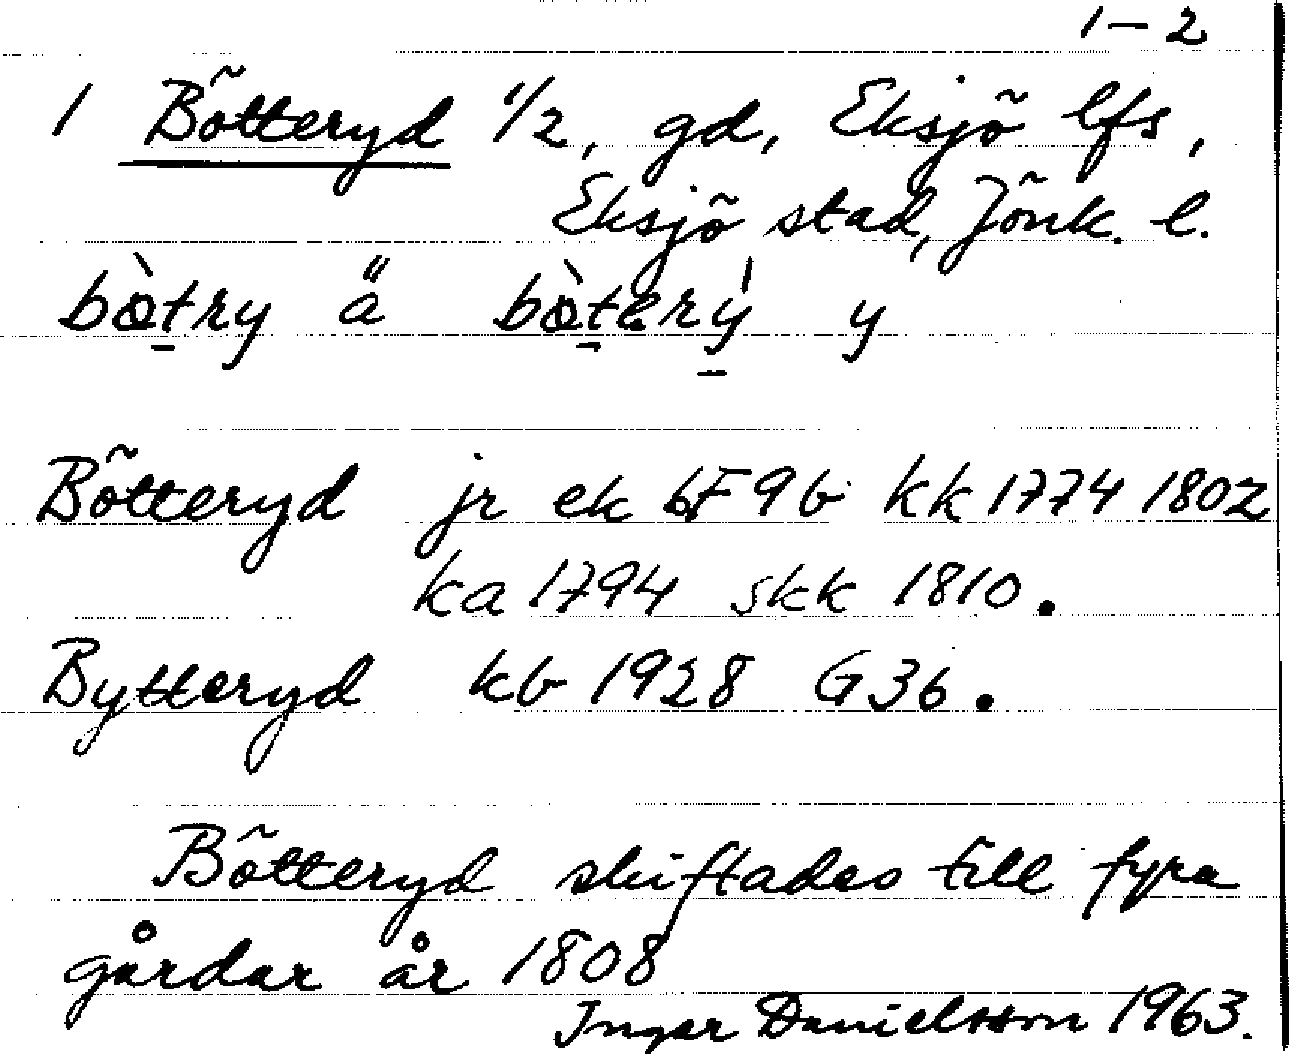 1-2
1 Bötteryd 1/2, gd, Eksjö lfs,
Eksjö stad, Jönk. l.
bòtry ä bòterý y
Bötteryd jr ek bF9b kk 1774 1802
ka 1794 skk 1810.
Bytteryd kb 1928 G36.
Bötteryd skiftades till fyra
gårdar år 1808
Inger Danielsson 1963.